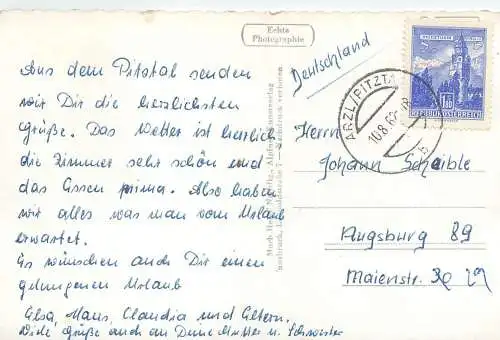 Aus dem Pitztal senden
wir Dir die herzlichsten
Grüße. Das Wetter ist herrlich
die Zimmer sehr schön und
das Essen prima. Also haben
wir alles was man vom Urlaub
erwartet.
Es wünschen auch Dir einen
gelungenen Urlaub
Elsa, Hans, Claudia und Eltern.
Viele Grüße auch an Deine Mutter u. Schwester
Echte
Photographie
Deutschland
ARZL/PITZTAL
10.8.62
b
REPUBLIK ÖSTERREICH
Herrn
Johann Scheible
Augsburg 89
Maienstr. 29